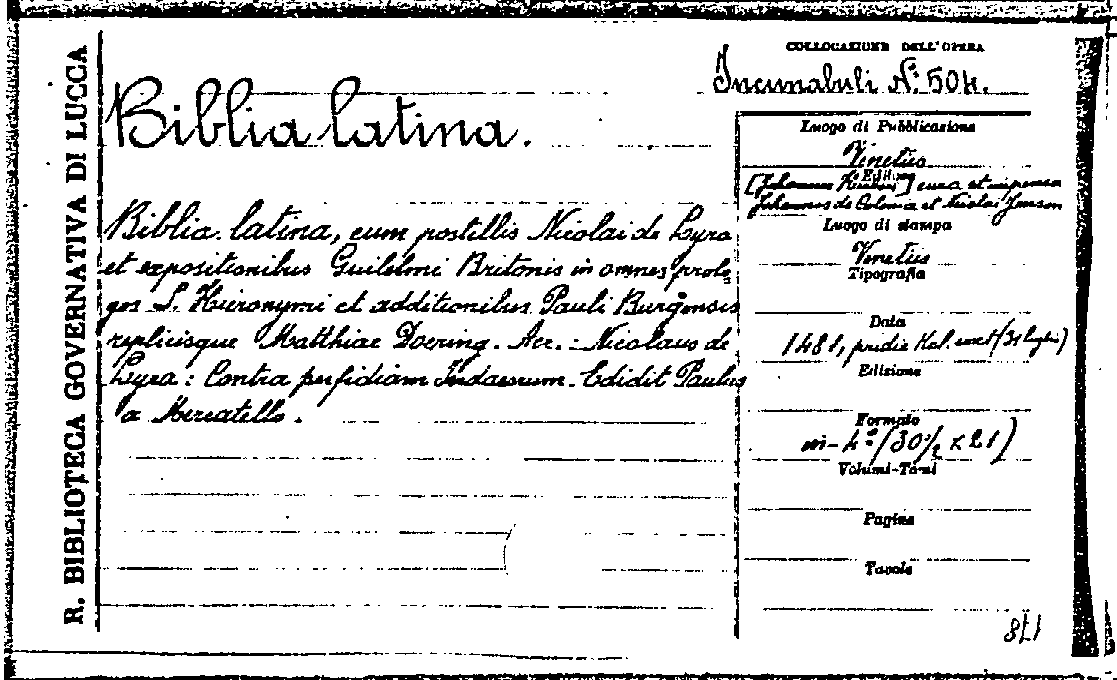 R. BIBLIOTECA GOVERNATIVA DI LUCCA
COLLOCAZIONE DELL'OPERA
Incunabuli N.º 504.
Biblia latina.
Biblia latina, cum postillis Nicolai de Lyra
et expositionibus Guilelmi Britonis in omnes prolo
gos S. Hieronymi et additionibus Pauli Burgensis
replicisque Matthiae Doering. Acc.: Nicolaus de
Lyra: Contra perfidiam Judaeorum. Edidit Paulus
a Mercatello.
Luogo di Pubblicazione
Venetiis
Editore
[Johannes] cura et impensa
Johannis de Colonia et Nicolai Jenson
Luogo di stampa
Venetiis
Tipografia
Data
1481, pridie Kal. (31 luglio)
Edizione
Formato
in-4.º (30½ x 21)
Volumi-Tomi
Pagine
Tavole
178